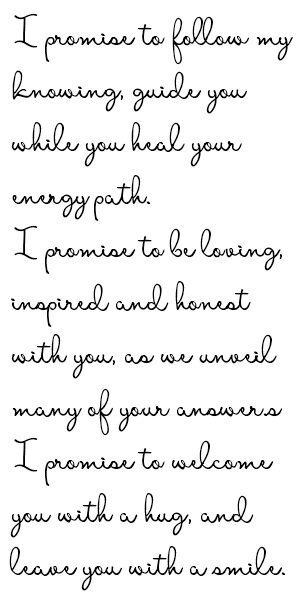 I promise to follow my
knowing, guide you
while you heal your
energy path.
I promise to be loving,
inspired and honest
with you, as we unveil
many of your answers
I promise to welcome
you with a hug, and
leave you with a smile.